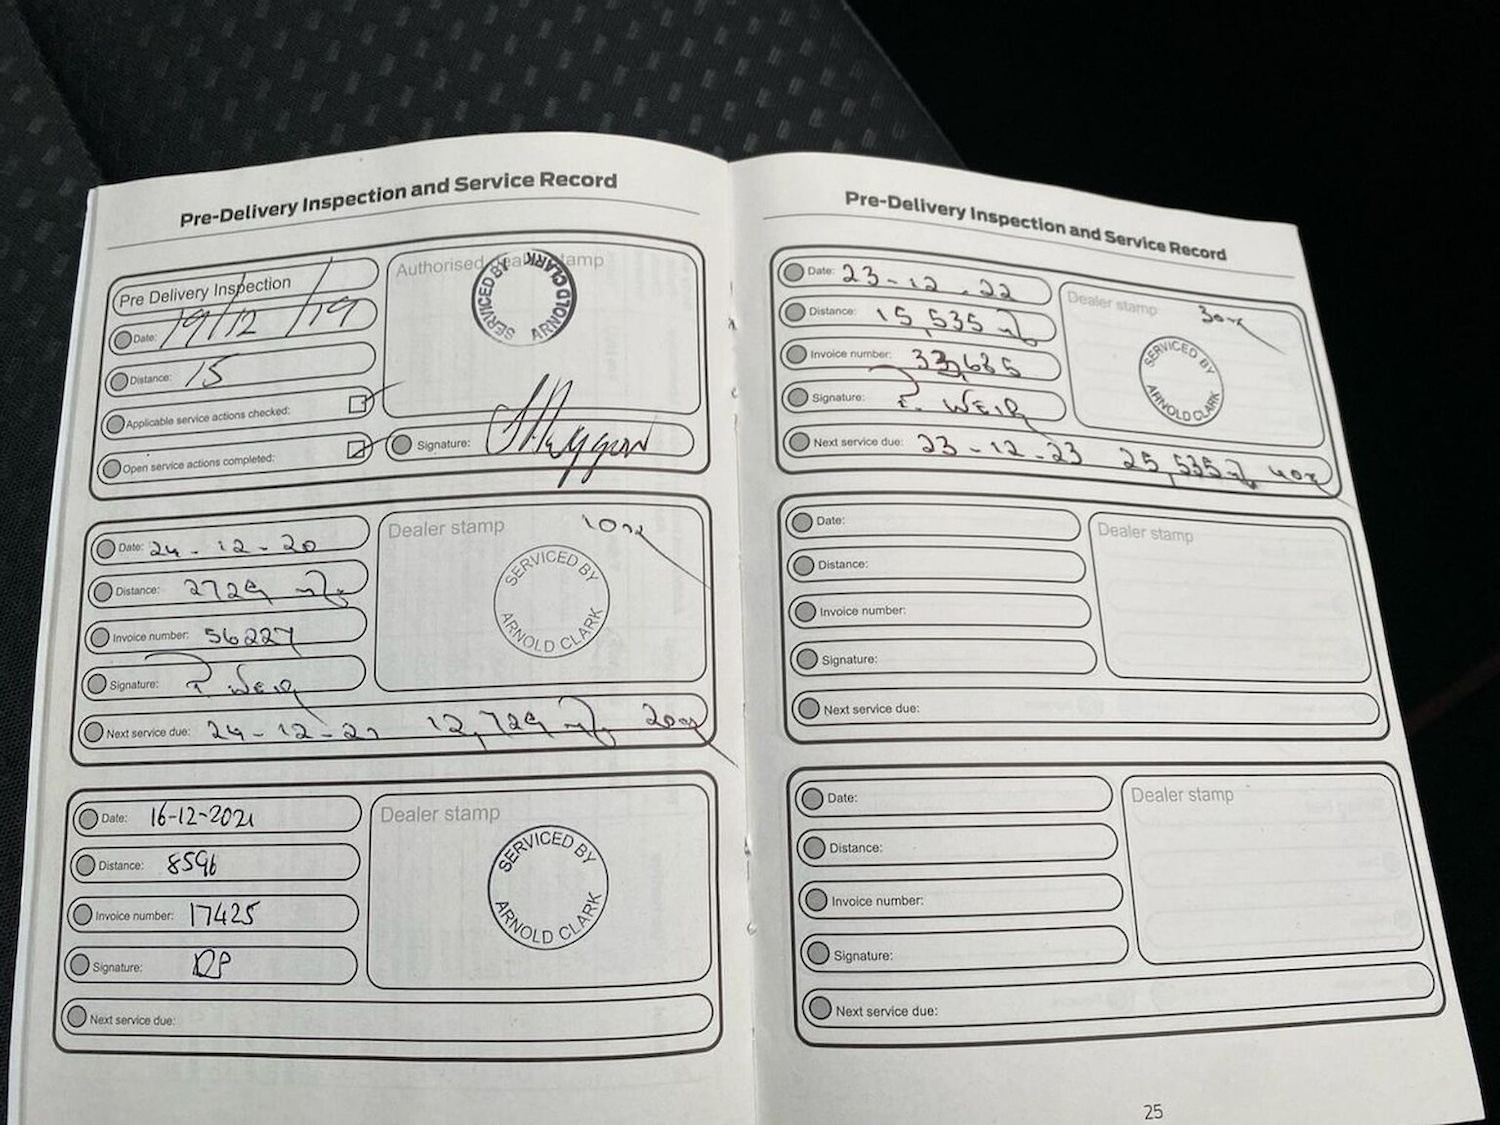 Pre-Delivery Inspection and Service Record
Pre Delivery Inspection
Date: 19/12/19
Distance: 15
Applicable service actions checked:
Open service actions completed:
Authorised dealer stamp
SERVICED BY ARNOLD CLARK
Signature:
Date: 24-12-20
Distance: 2729
Invoice number: 56227
Signature: P. Weir
Next service due: 24-12-21 12,729
Dealer stamp
SERVICED BY ARNOLD CLARK
Date: 16-12-2021
Distance: 8596
Invoice number: 17425
Signature: DP
Next service due:
Dealer stamp
SERVICED BY ARNOLD CLARK
Pre-Delivery Inspection and Service Record
Date: 23-12-22
Distance: 15,535
Invoice number:
Signature: P. WEIR
Next service due: 23-12-23 25,535
Dealer stamp
SERVICED BY ARNOLD CLARK
Date:
Distance:
Invoice number:
Signature:
Next service due:
Dealer stamp
Date:
Distance:
Invoice number:
Signature:
Next service due:
Dealer stamp
25